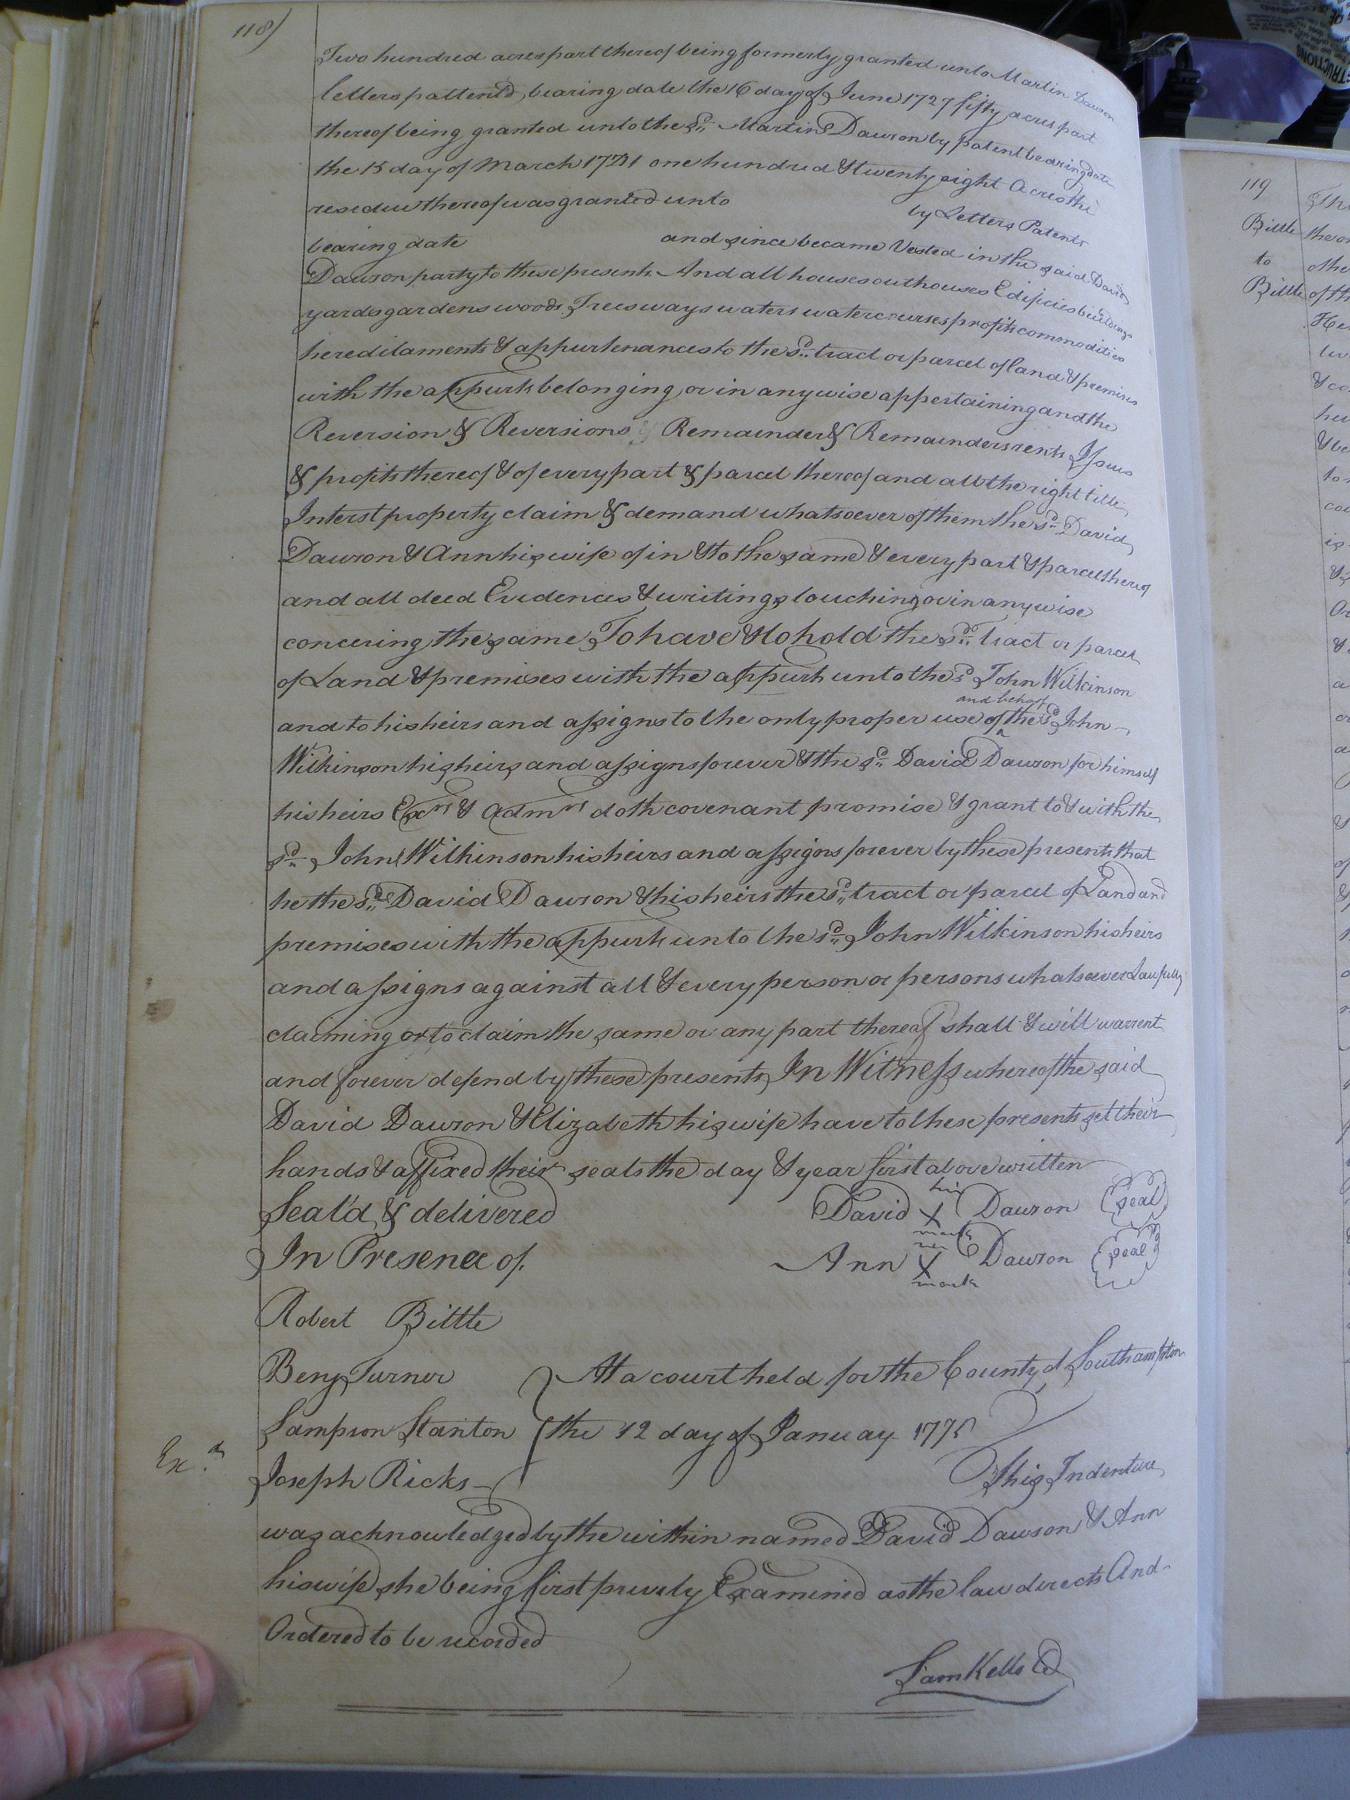 118)
Two hundred acres part thereof being formerly granted unto Martin Dawson
letters pattents, bearing date the 16 day of June 1727 fifty acres part
thereof being granted unto the sd. Martin Dawson by patent bearing date
the 15 day of March 1731 one hundred & twenty eight Acres the
residue thereof was granted unto by Letters Patents
bearing date and since became Vested in the said David
Dawson party to these presents And all houses outhouses Edificies buildings
yards gardens woods Trees ways waters watercourses profits commodities
hereditaments & appurtenances to the sd. tract or parcel of land & premises
with the appurts belonging or in any wise appertaining and the
Reversion & Reversions Remainder & Remainders rents Issues
& profits thereof & of every part & parcel thereof and all the right title
Interst property claim & demand whatsoever of them the sd. David
Dawson & Ann his wife of in & to the same & every part & parcel thereof
and all deed Evidences & writings touching or in any wise
concering the same To have & to hold the sd. tract or parcel
of Land & premises with the appurts unto the sd. John Wilkinson
and to his heirs and assigns to the only proper use and behoof of the sd. John
Wilkinson his heirs and assigns forever & the sd. David Dawson for himself
his heirs Exrs & Admrs doth covenant promise & grant to & with the
sd. John Wilkinson his heirs and assigns forever by these presents that
he the sd. David Dawson & his heirs the sd. tract or parcel of Land and
premises with the appurts unto the sd. John Wilkinson his heirs
and assigns against all & every person or persons whatsoever Lawfully
claiming or to claim the same or any part thereof shall & will warrent
and forever defend by these presents In Witness whereof the said
David Dawson & Elizabeth his wife have to these presents set their
hands & affixed their seals the day & year first above written
Seal'd & delivered David his X mark Dawson seal
In Presence of Ann X mark Dawson seal
Robert Bittle
Benj Turner At a court held for the County of Southampton
Sampson Stanton the 12 day of January 1775
Exd. Joseph Ricks This Indenture
was acknowledged by the within named David Dawson & Ann
his wife she being first privily Examined as the law directs And
Ordered to be recorded
Sam Kello Cl
119
Bittle
to
Bittle